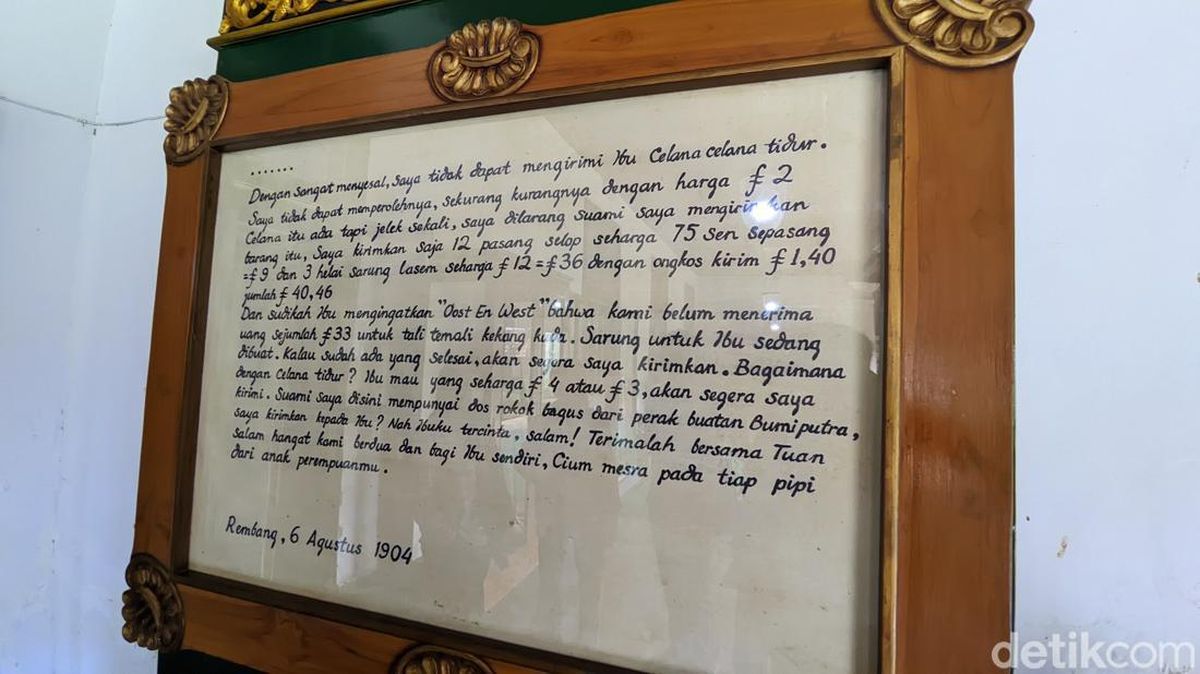 .......
Dengan sangat menyesal, Saya tidak dapat mengirimi Ibu Celana celana tidur.
Saya tidak dapat memperolehnya, sekurang kurangnya dengan harga £ 2
Celana itu ada tapi jelek sekali, saya dilarang suami saya mengirimkan
barang itu, Saya kirimkan saja 12 pasang selop seharga 75 sen sepasang
=£ 9 dan 3 helai sarung lasem seharga £ 12 = £ 36 dengan ongkos kirim £ 1,40
jumlah £ 40,46
Dan sudikah Ibu mengingatkan "Oost En West" bahwa kami belum menerima
uang sejumlah £ 33 untuk tali temali kekang kuda. Sarung untuk Ibu sedang
dibuat. Kalau sudah ada yang selesai, akan segera saya kirimkan. Bagaimana
dengan Celana tidur? Ibu mau yang seharga £ 4 atau £ 3, akan segera saya
kirimi. Suami saya disini mempunyai dos rokok bagus dari perak buatan Bumiputra,
saya kirimkan kepada Ibu? Nah Ibuku tercinta, salam! Terimalah bersama Tuan
salam hangat kami berdua dan bagi Ibu sendiri, Cium mesra pada tiap pipi
dari anak perempuanmu.
Rembang, 6 Agustus 1904
detikcom